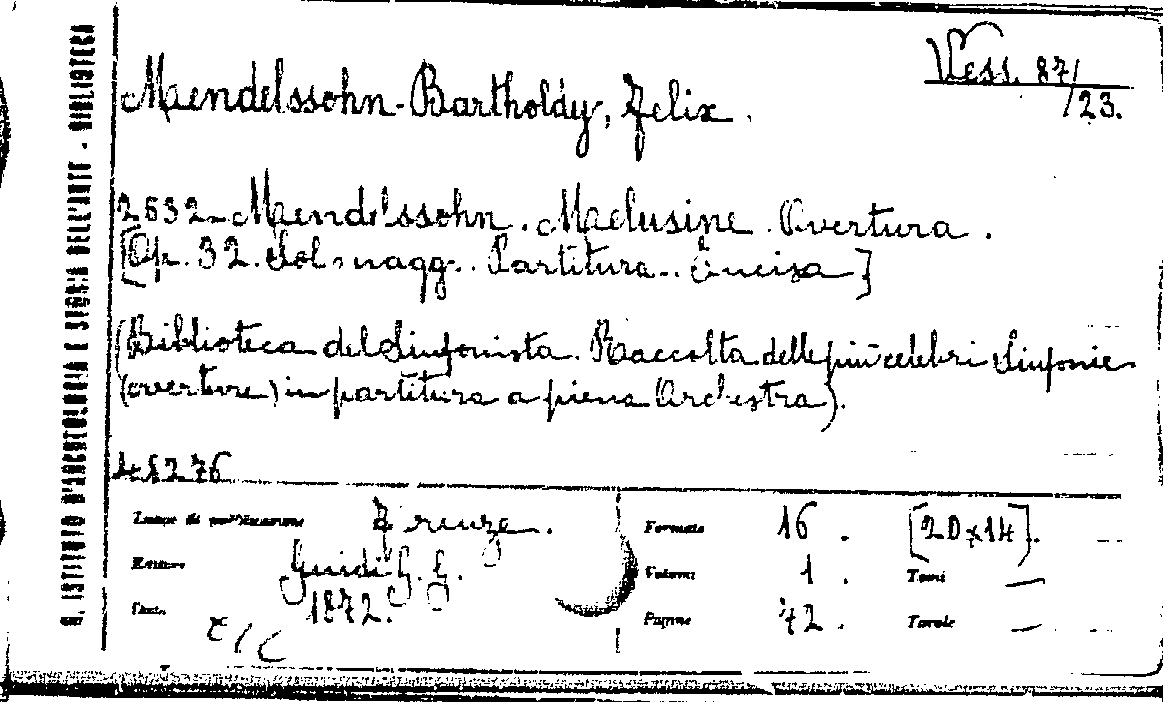 Vess. 87/
/23.
Maendelssohn-Bartholdy, Felix.
2632-Maendelssohn. Maelusine. Overtura.
[Op. 32. Sol magg. Partitura. Incisa]
(Biblioteca del Sinfonista. Raccolta delle più celebri Sinfonie
(overture) in partitura a piena Orchestra).
48276
Luogo di pubblicazione Firenze.
Editore Guidi G. G.
Data 1872.
Formato 16. [20x14].
Volumi 1. Tomi —
Pagine 42. Tavole —
R. ISTITUTO D'ARCHEOLOGIA E STORIA DELL'ARTE - BIBLIOTECA